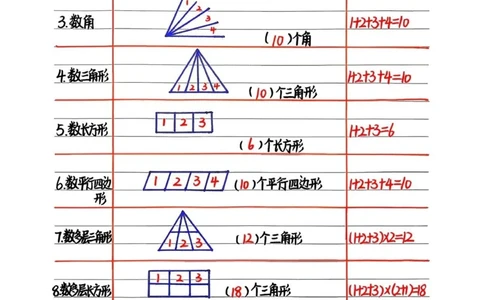 1
2
3
4
3.数角
(10)个角
1+2+3+4=10
4.数三角形
1 2 3 4
(10)个三角形
1+2+3+4=10
5.数长方形
1 2 3
(6)个长方形
1+2+3=6
6.数平行四边形
1 2 3 4
(10)个平行四边形
1+2+3+4=10
7.数多层三角形
1 2 3
(12)个三角形
(1+2+3)×2=12
8.数多层长方形
1 2 3
(18)个三角形
(1+2+3)×(2+1)=18